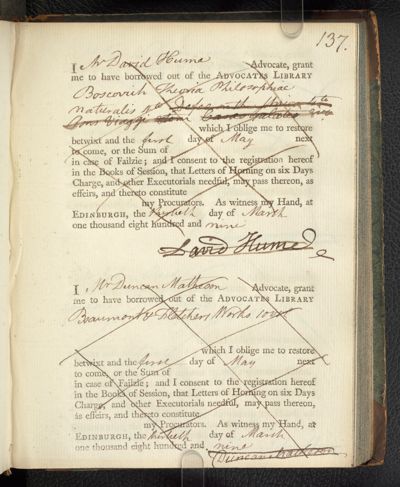 137.
I Mr David Hume Advocate, grant
me to have borrowed out of the ADVOCATES LIBRARY
Boscovich Theoria Philosophiae
naturalis 4to
which I oblige me to restore
betwixt and the first day of May next
to come, or the Sum of
in case of Failzie; and I consent to the registration hereof
in the Books of Session, that Letters of Horning on six Days
Charge, and other Executorials needful, may pass thereon, as
effeirs, and thereto constitute
my Procurators. As witness my Hand, at
EDINBURGH, the thirtieth day of March
one thousand eight hundred and nine
David Hume
I Mr Duncan Matheson Advocate, grant
me to have borrowed out of the ADVOCATES LIBRARY
Beaumont & Fletchers Works 10 vols
which I oblige me to restore
betwixt and the first day of May next
to come, or the Sum of
in case of Failzie; and I consent to the registration hereof
in the Books of Session, that Letters of Horning on six Days
Charge, and other Executorials needful, may pass thereon,
as effeirs, and thereto constitute
my Procurators. As witness my Hand, at
EDINBURGH, the thirtieth day of March
one thousand eight hundred and nine
Duncan Matheson